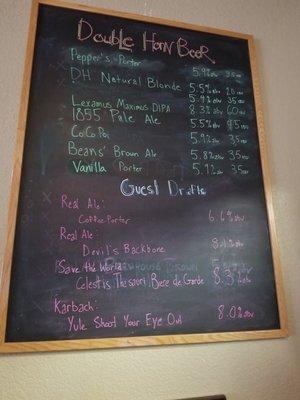 Double Horn Beer
Pepper's Porter 5.9% abv 35 IBU
DH Natural Blonde 5.5% abv 20 IBU
5.4% abv 35 IBU
Lexamus Maximus DIPA 8.3% abv 60 IBU
1855 Pale Ale 5.5% abv 45 IBU
CoCo Por 5.9% abv 35 IBU
Beans' Brown Ale 5.8% abv 35 IBU
Vanilla Porter 5.9% abv 35 IBU
Guest Drafts
Real Ale:
Coffee Porter 6.6% abv
Real Ale:
Devil's Backbone
Save the World:
Celestis Thesauri Biere de Garde 8.3% abv
Karbach:
Yule Shoot Your Eye Out 8.0% abv